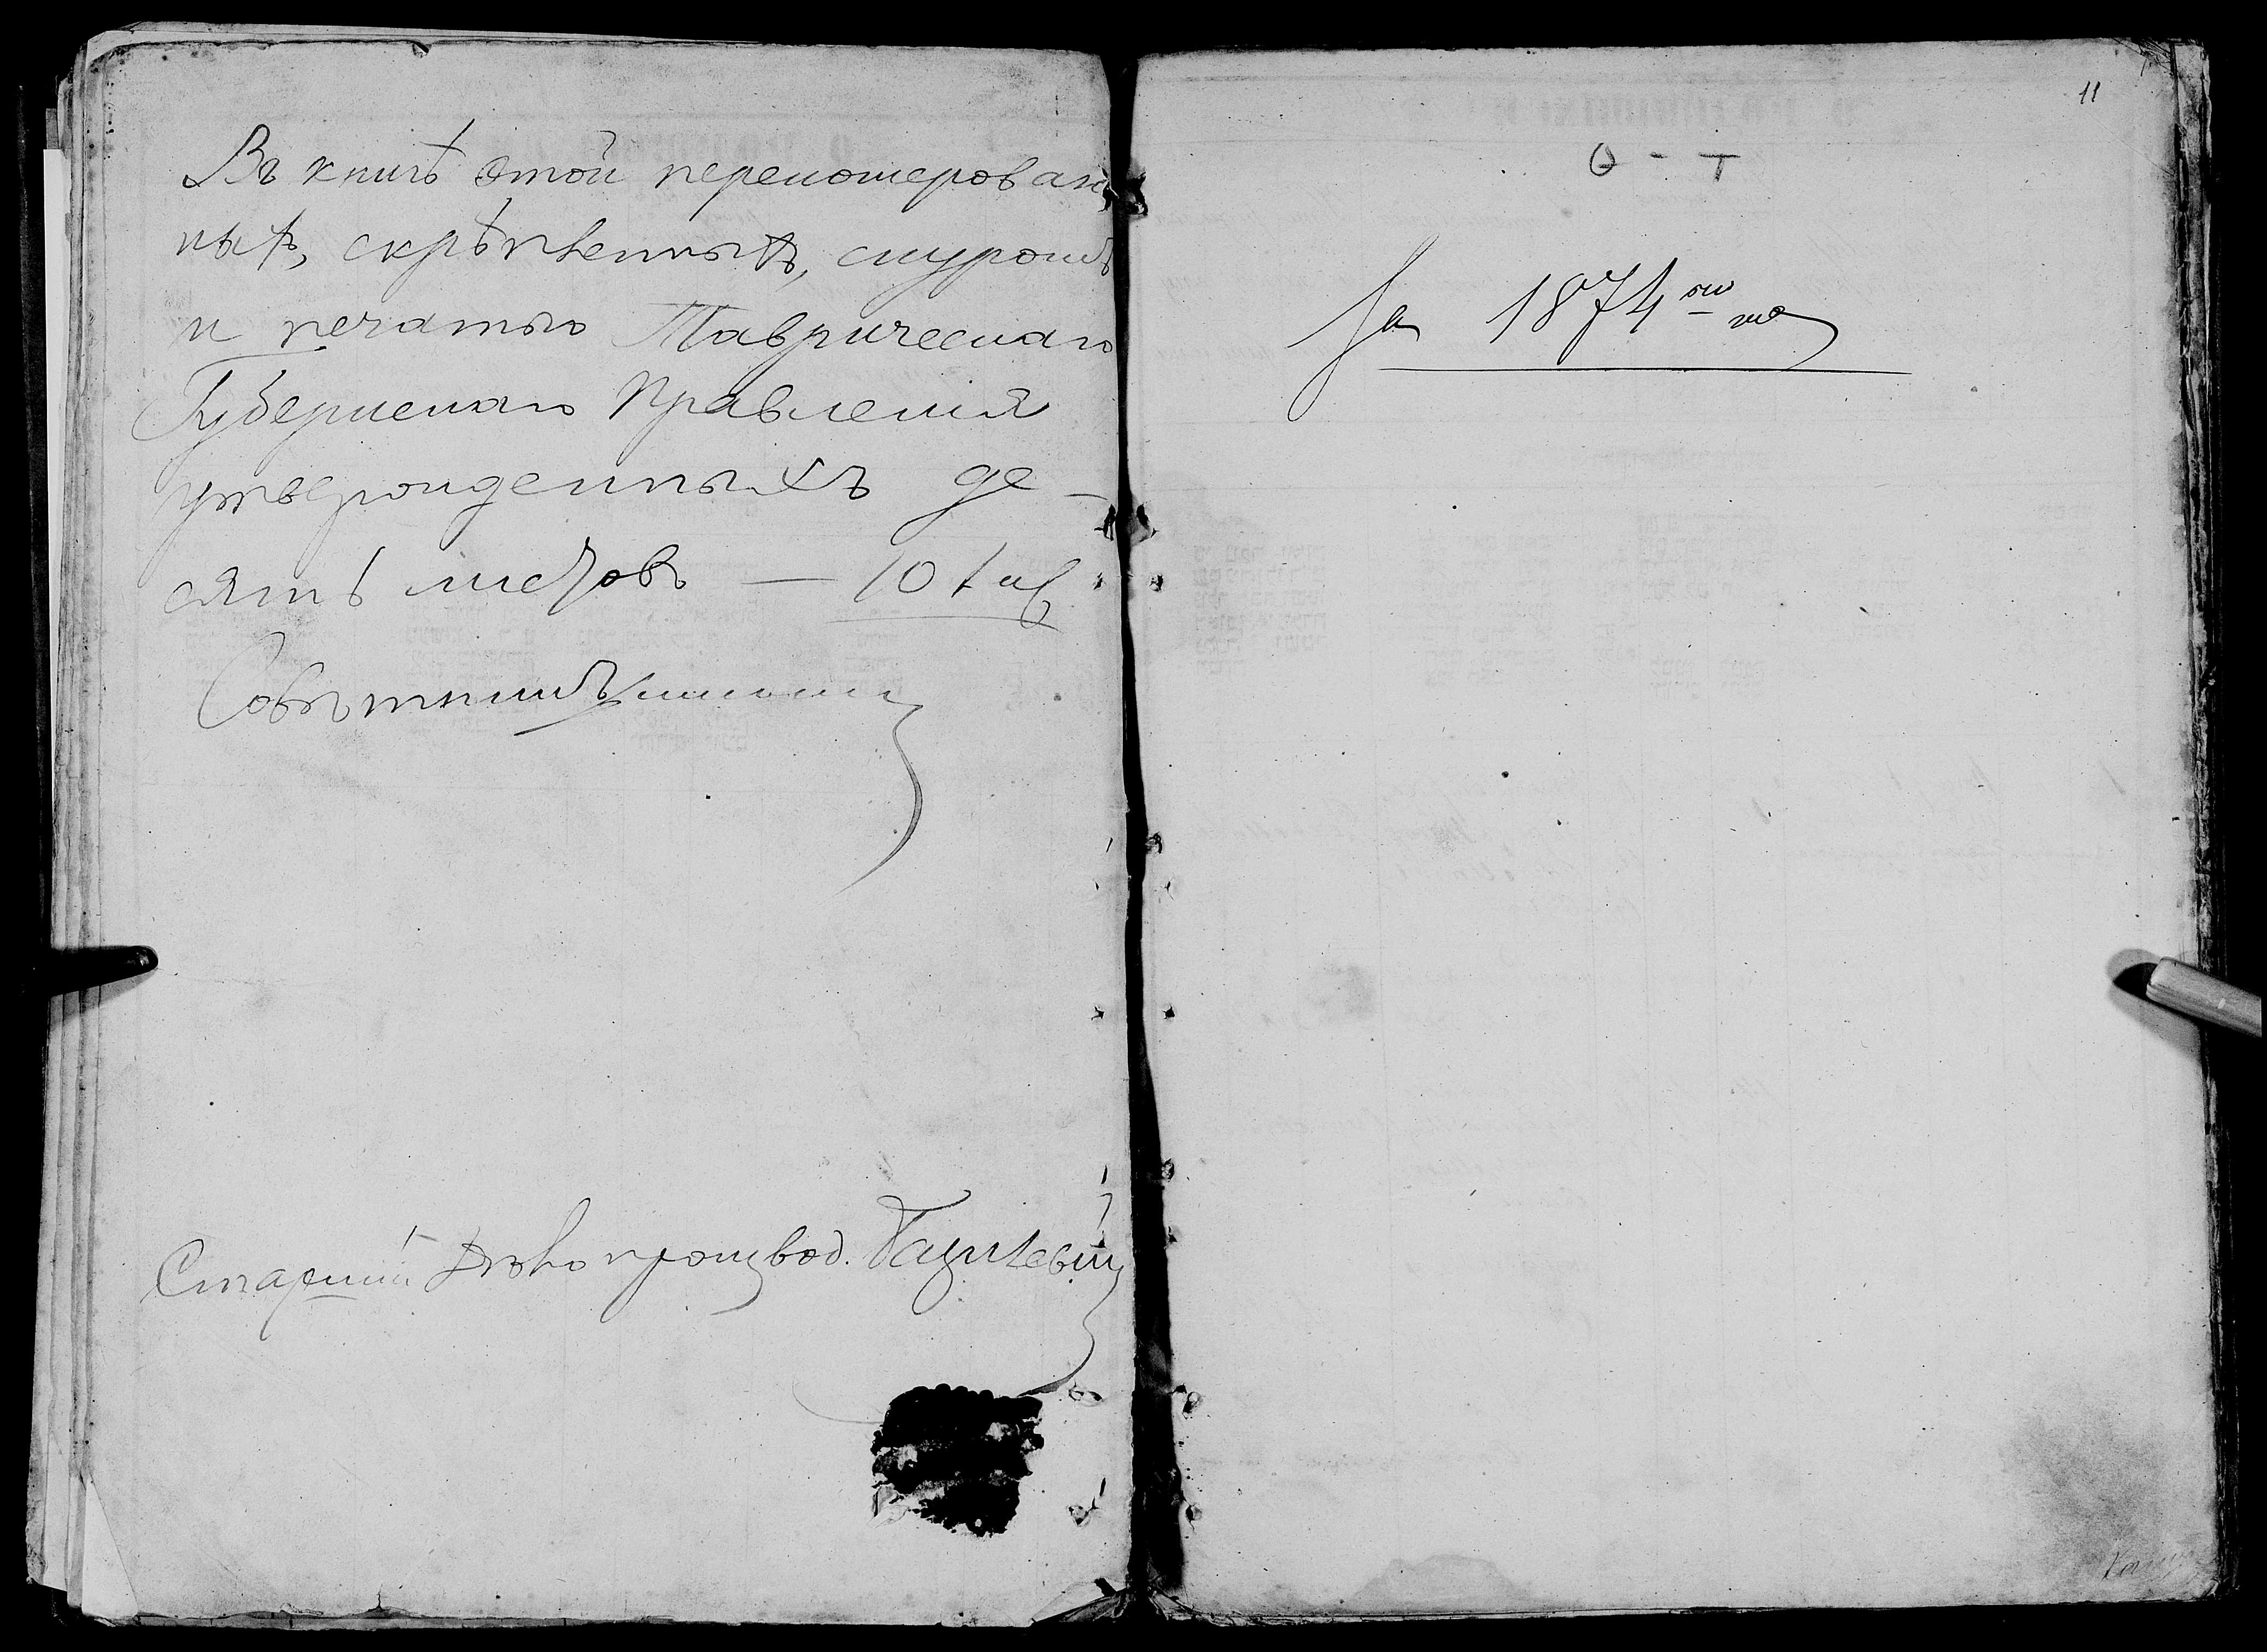 Въ книгѣ этой перенумерован
ныхъ, скрѣпленныхъ, шнуромъ
и печатью Таврическаго
Губернскаго Правленія
утвержденныхъ де-
сять листовъ — 10 лис
Совѣтникъ
Старшій Дѣлопроизвод.
11
О - Т
За 1874 год